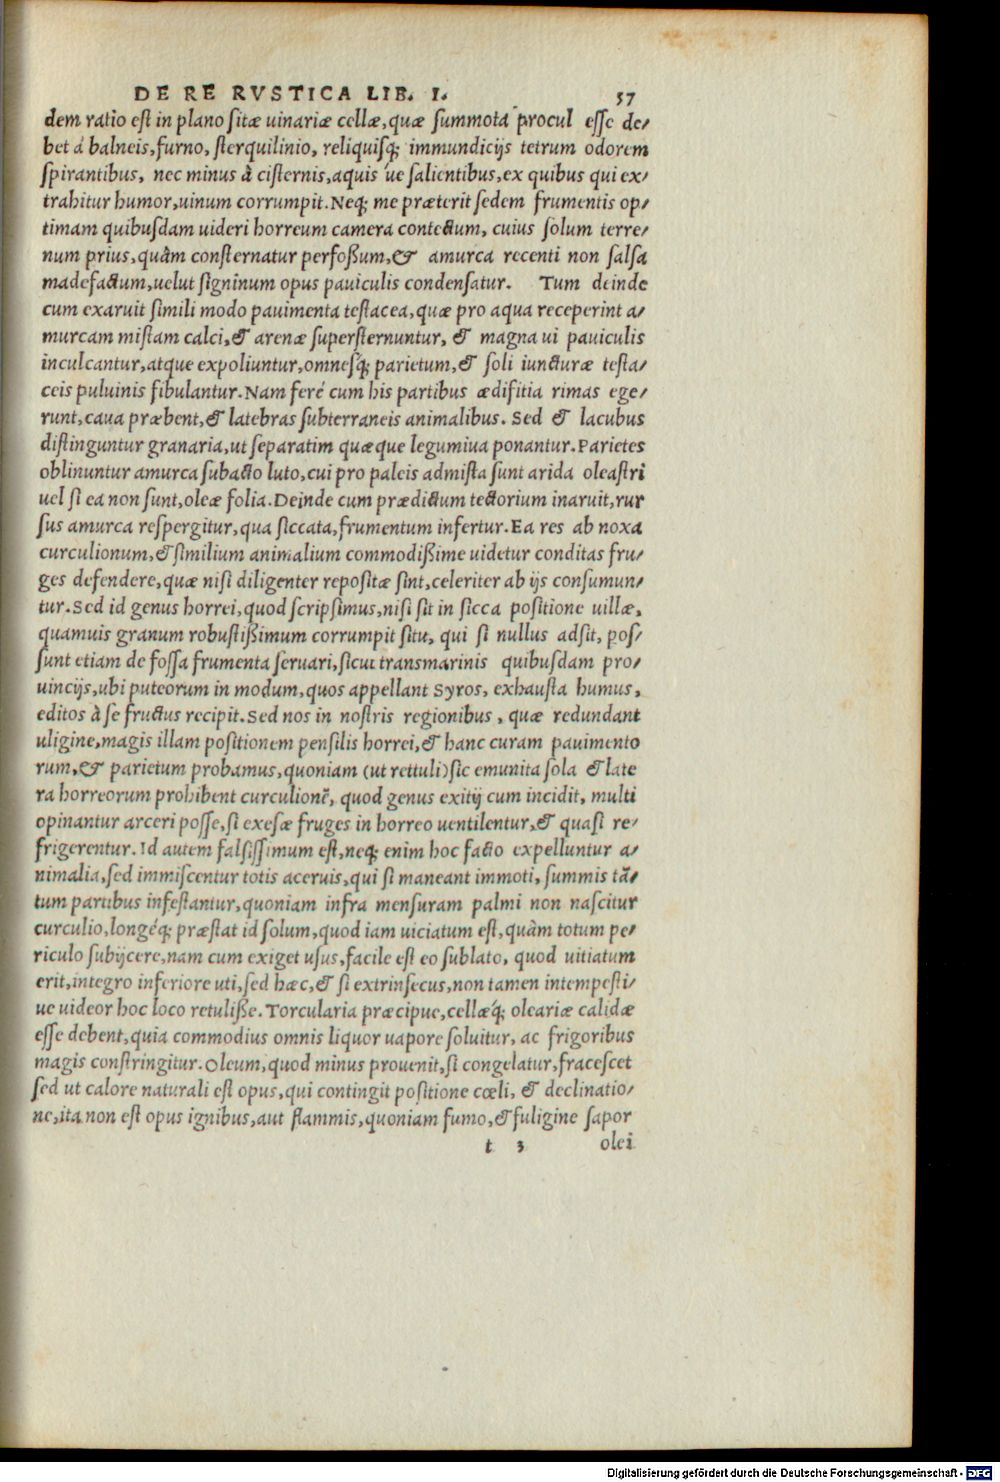 DE RE RVSTICA LIB. I. 57
dem ratio est in plano sitæ uinariæ cellæ, quæ summota procul esse de/
bet á balneis, furno, sterquilinio, reliquisq; immundicijs tetrum odorem
spirantibus, nec minus à cisternis, aquis úe salientibus, ex quibus qui ex/
trahitur humor, uinum corrumpit. Neq; me præterit sedem frumentis op/
timam quibusdam uideri horreum camera contectum, cuius solum terre/
num prius, quàm consternatur perfoßum, & amurca recenti non salsa
madefactum, uelut signinum opus pauiculis condensatur. Tum deinde
cum exaruit simili modo pauimenta testacea, quæ pro aqua receperint a/
murcam mistam calci, & arenæ supersternuntur, & magna ui pauiculis
inculcantur, atque expoliuntur, omnesq́; parietum, & soli iuncturæ testa/
ceis puluinis fibulantur. Nam feré cum his partibus ædifitia rimas ege/
runt, caua præbent, & latebras subterraneis animalibus. Sed & lacubus
distinguntur granaria, ut separatim quæque legumiua ponantur. Parietes
oblinuntur amurca subacto luto, cui pro paleis admista sunt arida oleastri
uel si ea non sunt, oleæ folia. Deinde cum prædictum tectorium inaruit, rur
sus amurca respergitur, qua siccata, frumentum infertur. Ea res ab noxa
curculionum, & similium animalium commodißime uidetur conditas fru/
ges defendere, quæ nisi diligenter repositæ sint, celeriter ab ijs consumun/
tur. Sed id genus horrei, quod scripsimus, nisi sit in sicca positione uillæ,
quamuis granum robustißimum corrumpit situ, qui si nullus adsit, pos/
sunt etiam defossa frumenta seruari, sicut transmarinis quibusdam pro/
uincijs, ubi puteorum in modum, quos appellant Syros, exhausta humus,
editos à se fructus recipit. Sed nos in nostris regionibus, quæ redundant
uligine, magis illam positionem pensilis horrei, & hanc curam pauimento
rum, & parietum probamus, quoniam (ut rettuli) sic emunita sola & late
ra horreorum prohibent curculionẽ, quod genus exitij cum incidit, multi
opinantur arceri posse, si exesæ fruges in horreo uentilentur, & quasi re/
frigerentur. Id autem falsissimum est, neq; enim hoc facto expelluntur a/
nimalia, sed immiscentur totis aceruis, qui si maneant immoti, summis tã/
tum partibus infestantur, quoniam infra mensuram palmi non nascitur
curculio, longéq; præstat id solum, quod iam uiciatum est, quàm totum pe/
riculo subijcere, nam cum exiget usus, facile est eo sublato, quod uitiatum
erit, integro inferiore uti, sed hæc, & si extrinsecus, non tamen intempesti/
ue uideor hoc loco retuliße. Torcularia præcipue, cellæq́; oleariæ calidæ
esse debent, quia commodius omnis liquor uapore soluitur, ac frigoribus
magis constringitur. Oleum, quod minus prouenit, si congelatur, fracescet
sed ut calore naturali est opus, qui contingit positione cœli, & declinatio/
ne, ita non est opus ignibus, aut flammis, quoniam fumo, & fuligine sapor
t 3 olei
Digitalisierung gefördert durch die Deutsche Forschungsgemeinschaft - DFG